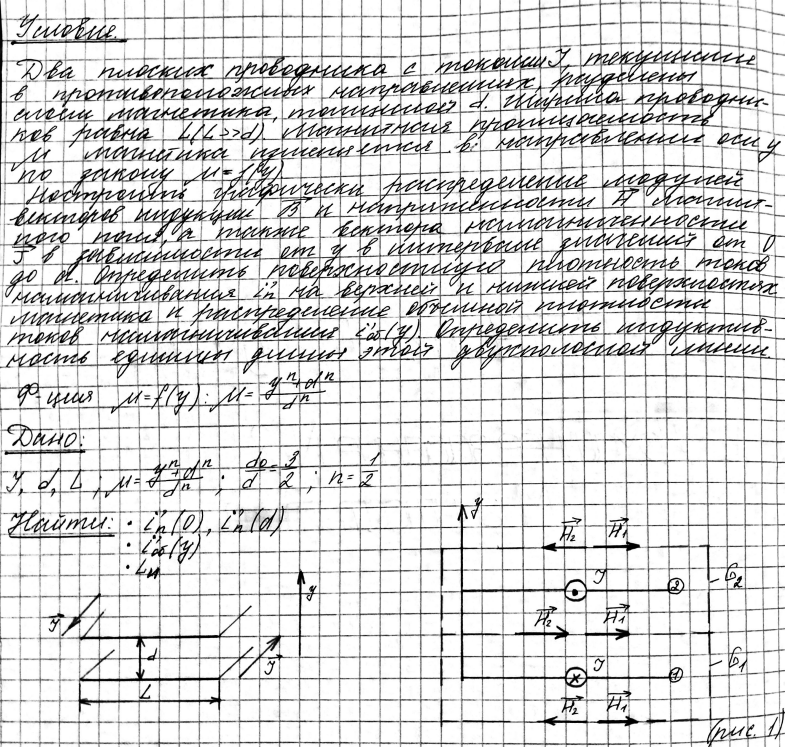 Условие.
Два плоских проводника с токами I, текущими
в противоположных направлениях, разделены
слоем магнетика, толщиной d. Ширина проводни-
ков равна L(L>>d). Магнитная проницаемость
μ магнетика изменяется в направлении оси y
по закону μ=f(y)
Построить графически распределение модулей
векторов индукции B и напряженности H магнит-
ного поля, а также вектора намагниченности
J в зависимости от y в интервале значений от 0
до d. Определить поверхностную плотность токов
намагничивания i'n на верхней и нижней поверхностях
магнетика и распределение объемной плотности
токов намагничивания i'об(y). Определить индуктив-
ность единицы длины этой двухполосной линии.
Ф-ция μ=f(y): μ= yⁿ+dⁿ / dⁿ
Дано:
I, d, L; μ= yⁿ+dⁿ / dⁿ ; d₀/d = 3/2 ; n= 1/2
Найти: • i'n(0), i'n(d)
• i'об(y)
• Lн
y
H₂ H₁
I
②
G₂
H₂ H₁
I
①
G₁
H₂ H₁
(рис. 1)
I
d
I
L
y